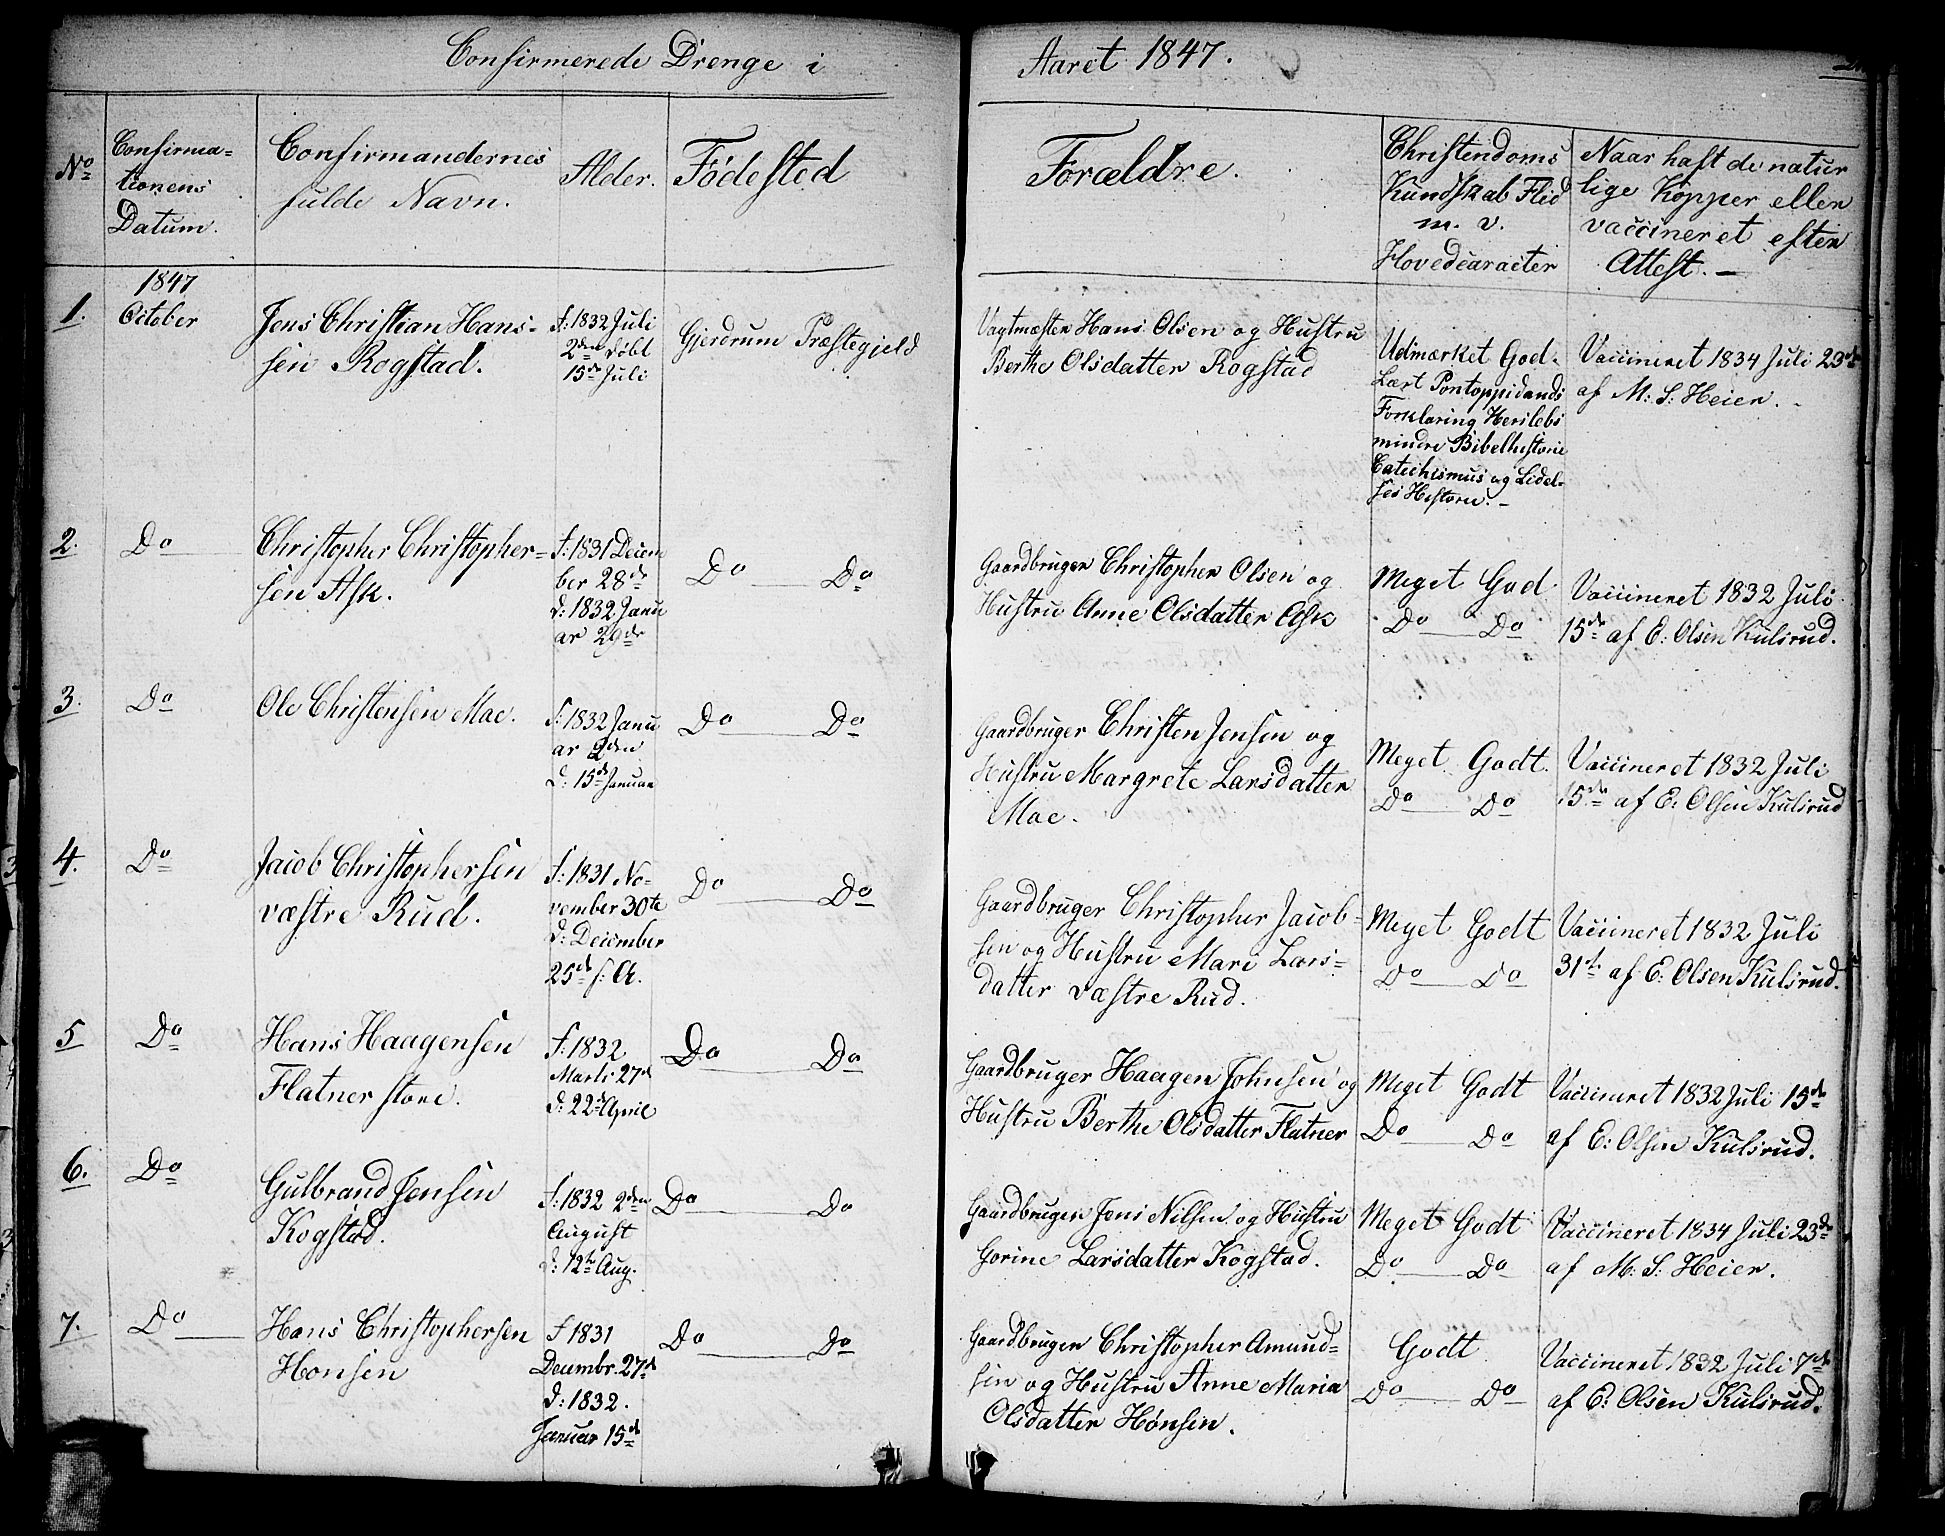 Confirmerede Drenge i Aaret 1847.
No
Confirma=
tionens
Datum.
Confirmandernes
fulde Navn.
Alder.
Fødested
Forældre.
Christendoms
Kundskab Flid
m. v.
Hovedcaracter
Naar haft de natur
lige Kopper eller
vaccineret efter
Attest. —
1.
1847
October
Jens Christian Hans=
sen Rogstad.
f: 1832 Juli
2den døbt
15de Juli
Gjerdrum Præstegjeld
Vagtmester Hans Olsen og Hustru
Berthe Olsdatter Rogstad
Udmærket God.
Lært Pontoppidands
Forklaring Herslebs
mindre Bibelhistorie
Catechismus og Lidel=
ses Historie. —
Vaccineret 1834 Juli 23de
af M: S: Heier. -
2.
Do
Christopher Christopher=
sen Ask.
f: 1831 Decem
ber 28de
d: 1832 Janu
ar 29de
Do Do
Gaardbruger Christopher Olsen og
Hustru Anne Olsdatter Ask
Meget God
Do Do
Vaccineret 1832 Juli
15de af E: Olsen Kulsrud.
3.
Do
Ole Christensen Mae.
f: 1832 Janu
ar 2den
d: 15de Januar
Do Do
Gaardbruger Christen Jensen og
Hustru Margrete Larsdatter
Mae.
Meget Godt.
Do Do
Vaccineret 1832 Juli
15de af E: Olsen Kulsrud
4.
Do
Jacob Christophersen
væstre Rud.
f: 1831 No=
vember 30te
d: December
25de s: A.
Do Do
Gaardbruger Christopher Jacob=
sen og Hustru Mari Lars=
datter væstre Rud.
Meget Godt
Do Do
Vaccineret 1832 Juli
31te af E: Olsen Kulsrud.
5
Do
Hans Haagensen
Flatner store.
f: 1832
Marti 27de
d: 22de April
Do Do
Gaardbruger Haagen Johnsen og
Hustru Berthe Olsdatter Flatner
Meget Godt
Do Do
Vaccineret 1832 Juli 15de
af E: Olsen Kulsrud.
6.
Do
Gulbrand Jensen
Kogstad.
f: 1832 2den
August
d: 12te Aug.
Do Do
Gaardbruger Jens Nilsen og Hustru
Gorine Larsdatter Kogstad.
Meget Godt
Do Do
Vaccineret 1834 Juli 23de
af M: S: Heier.
7.
Do
Hans Christophersen
Honsen
f 1831
Decembr. 27de
d: 1832.
Januar 15de
Do Do
Gaardbruger Christopher Amund=
sen og Hustru Anne Maria
Olsdatter Hønsen.
Godt
Do Do
Vaccineret 1832 Juli 7de
af E: Olsen Kulsrud.